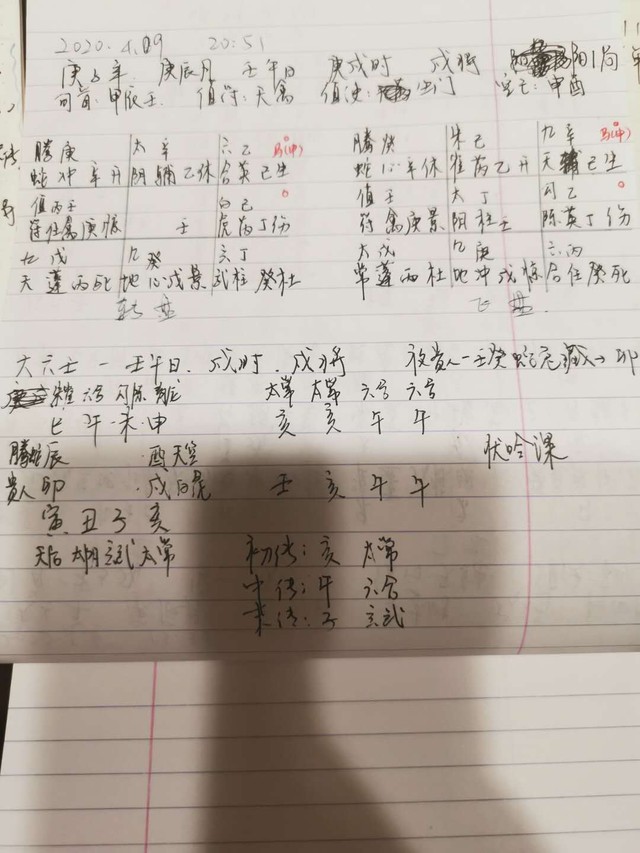 2020.4.09 20:51
庚子年 庚辰月 壬午日 庚戌时 戌将 阳1局
旬首:甲辰壬 值符:天禽 值使:死门 空亡:申酉
腾庚 太辛 六乙 马(申) 腾癸 朱己 九辛 马(申)
蛇冲辛开 阴辅乙休 合英己生 蛇心辛休 雀芮乙开 天辅己生
值丙壬 白己 值壬 太丁 勾乙
符任禽庚惊 壬 虎芮丁伤 符禽庚景 阴柱壬 陈英丁伤
九戊 九癸 六丁 太戊 九庚 六丙
天蓬丙死 地心戊景 武柱癸杜 常蓬丙杜 地冲戊惊 合任癸死
转盘 飞盘
大六壬—壬午日.戌时.戌将 夜贵人—壬癸蛇兔藏→卯
六合 勾陈 青龙 太常 太常 六合 六合
巳 午 未 申 亥 亥 午 午
腾蛇辰 酉天空 伏吟课
贵人卯 戌白虎 壬 亥 午 午
寅 丑 子 亥
天后 太阴 玄武 太常 初传:亥 太常
中传:午 六合
末传:子 玄武